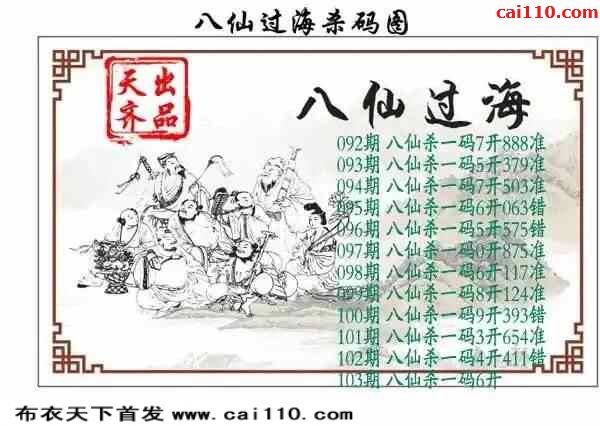 八仙过海杀码图
cai110.com
天齐出品
八仙过海
092期 八仙杀一码7开888准
093期 八仙杀一码5开379准
094期 八仙杀一码7开503准
095期 八仙杀一码6开063错
096期 八仙杀一码5开575错
097期 八仙杀一码0开875准
098期 八仙杀一码6开117准
099期 八仙杀一码8开124准
100期 八仙杀一码9开393错
101期 八仙杀一码3开654准
102期 八仙杀一码4开411错
103期 八仙杀一码6开
布衣天下首发 www.cai110.com